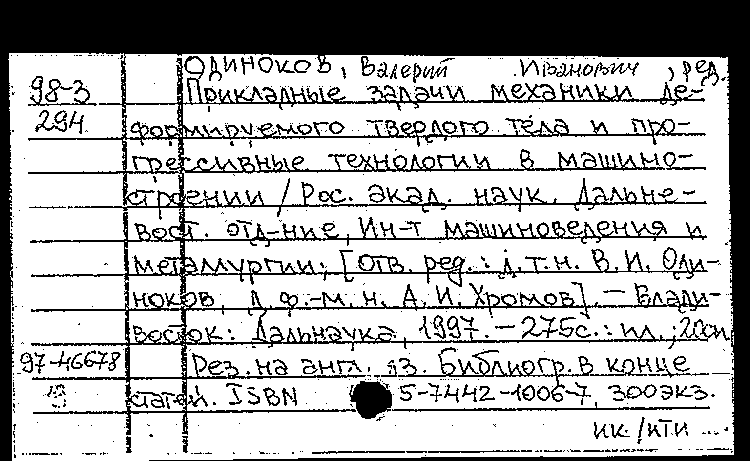 Одиноков, Валерий Иванович, ред.
98-3 Прикладные задачи механики де-
294 формируемого твердого тела и про-
грессивные технологии в машино-
строении / Рос. акад. наук. Дальне-
вост. отд-ние, Ин-т машиноведения и
металлургии; [отв. ред.: д.т.н. В.И. Оди-
ноков, д.ф.-м.н. А.И. Хромов]. — Влади-
восток: Дальнаука, 1997. — 275с.: ил.; 20см
97-46678 Рез. на англ. яз. Библиогр. в конце
статей. ISBN 5-7442-1006-7, 300экз.
ик./кти